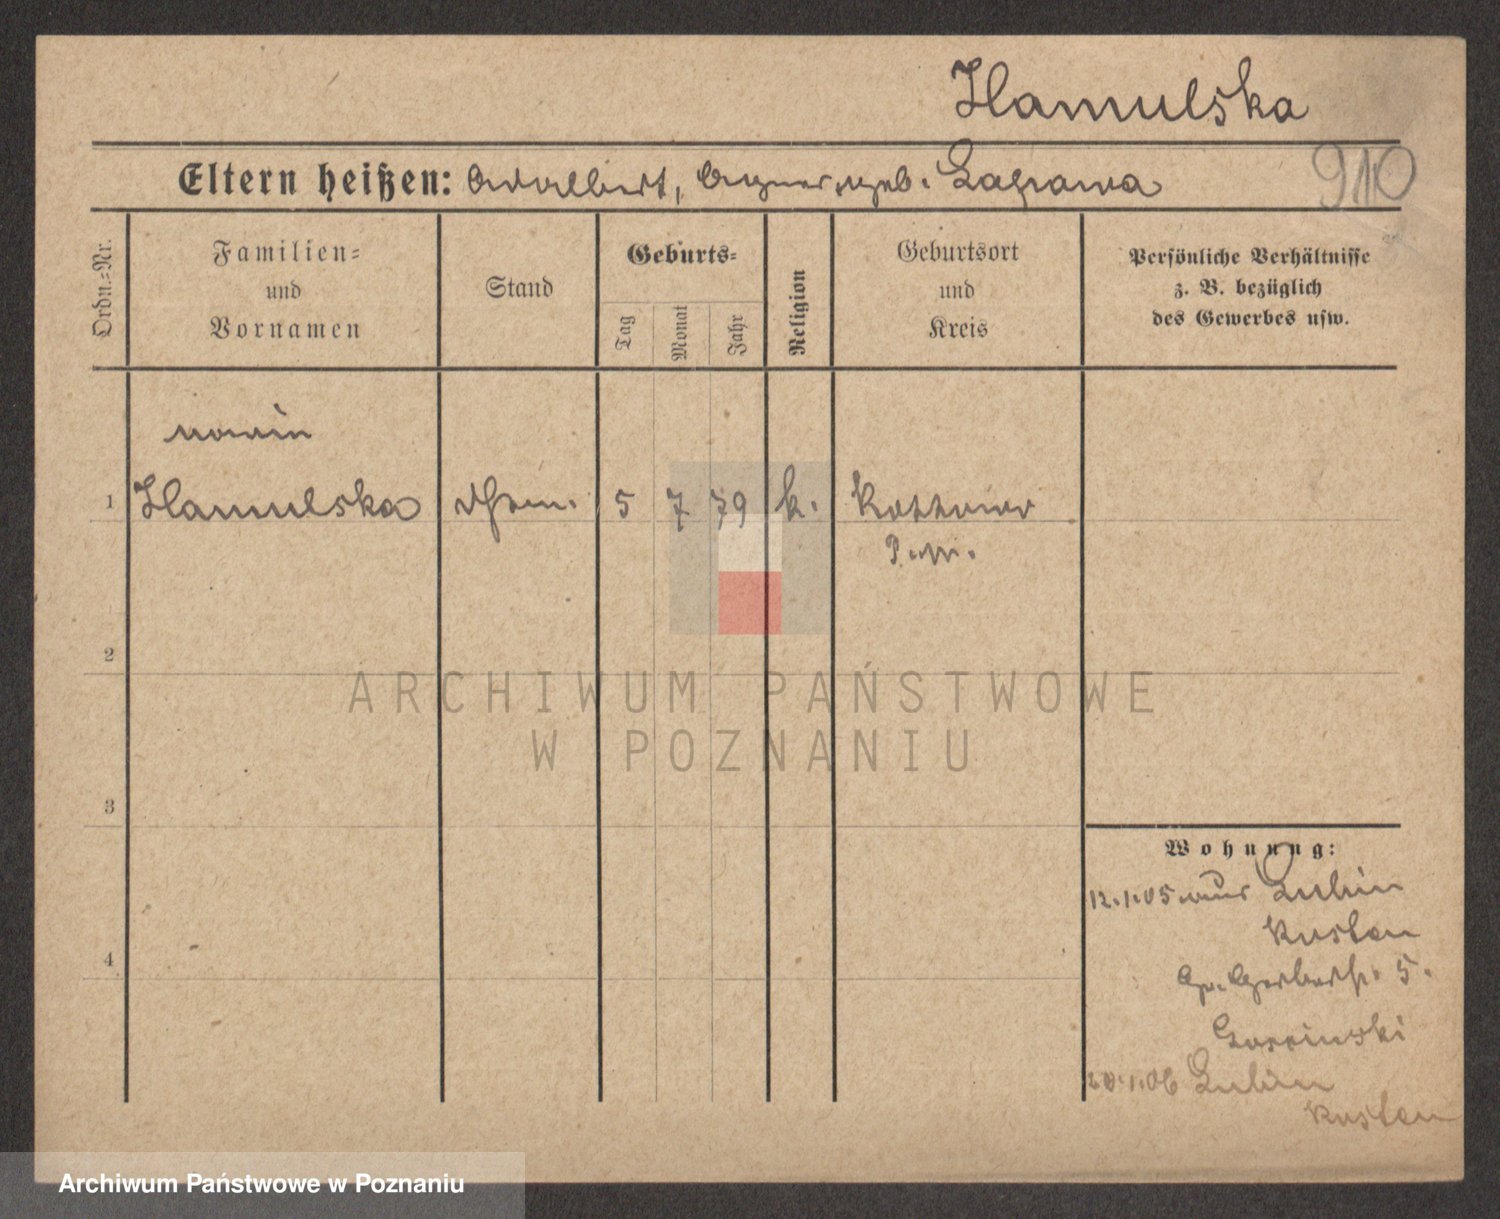 Hamulska
910
Eltern heißen: Adalbert, Agnes, geb.
Ordn.-Nr.
Familien- und Vornamen
Stand
Geburts-
Tag
Monat
Jahr
Religion
Geburtsort und Kreis
Persönliche Verhältnisse z. B. bezüglich des Gewerbes usw.
1
Hamulska
5 7 79 k.
2
ARCHIWUM PAŃSTWOWE
W POZNANIU
3
Wohnung:
12.1.05 aus Lubin
Kosten
Gr. Gerberstr. 5.
4
20.1.06 Lubin
Kosten
Archiwum Państwowe w Poznaniu